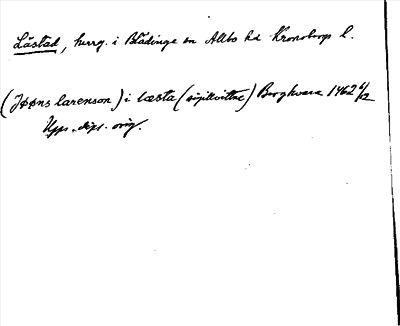 Låstad, herrg. i Blädinge sn Allbo hd Kronobergs l.
(Jøøns larenson) i læsta (sigillvittne) Bergkvara 1462 6/12
Upps. dipl. orig.